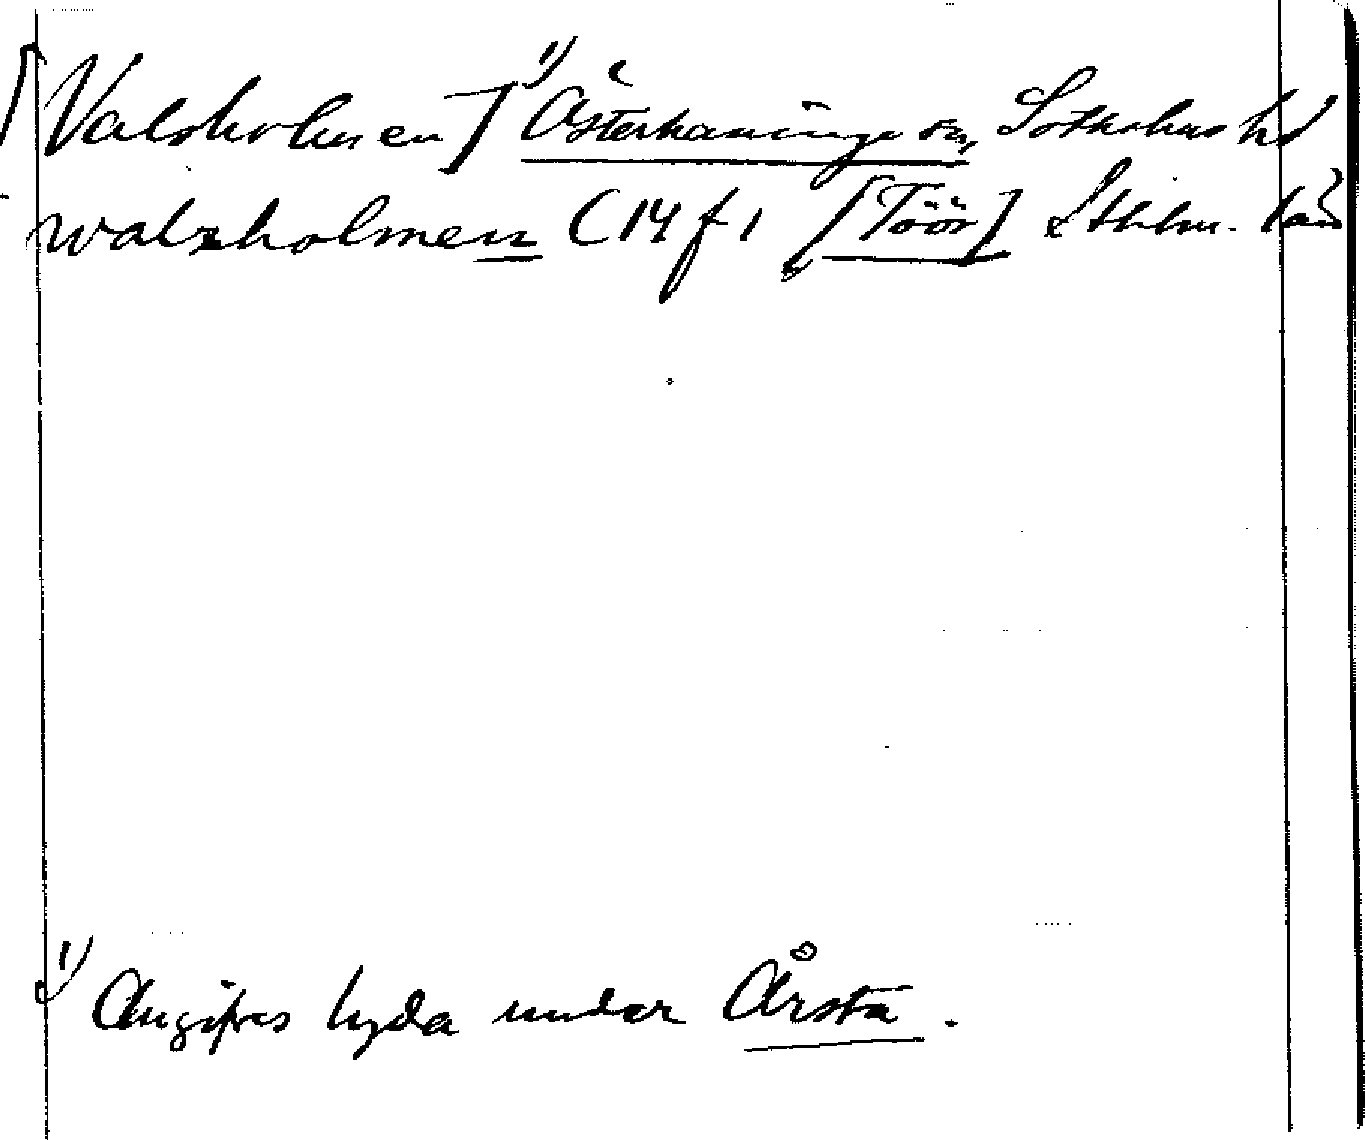 [Valsholmen] 1) Österhaninge sn, Sotholms hd
walzholmen (14 f 1 [Töör] Sthlm. län
1) Angifves lyda under Årsta.